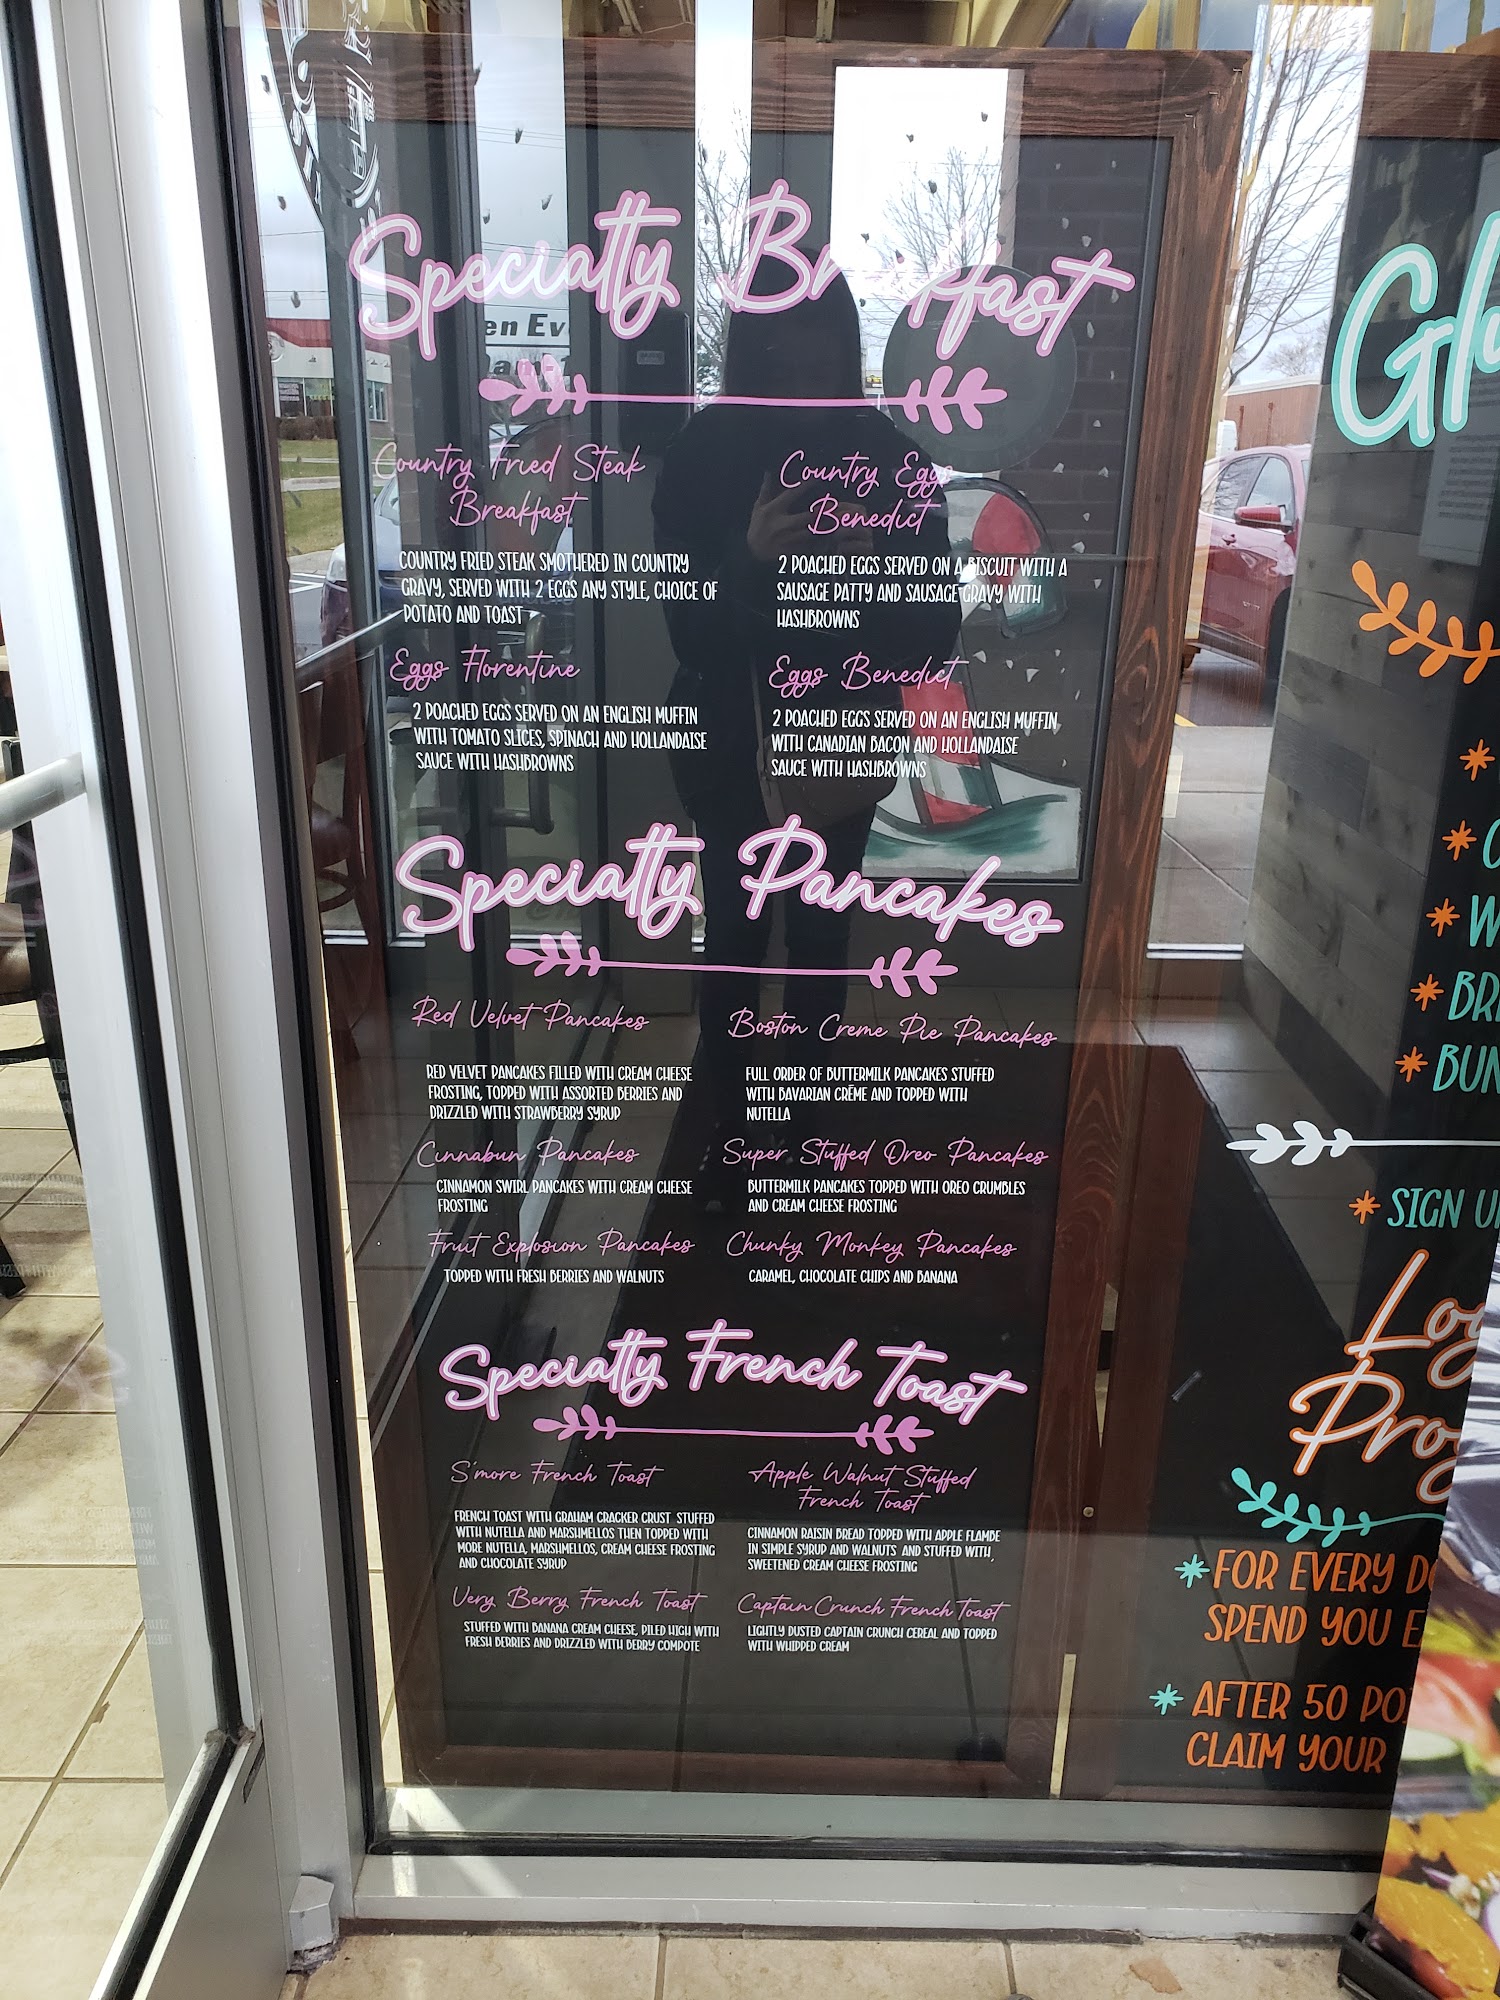 Specialty Breakfast
Country Fried Steak
Breakfast
COUNTRY FRIED STEAK SMOTHERED IN COUNTRY
GRAVY, SERVED WITH 2 EGGS ANY STYLE, CHOICE OF
POTATO AND TOAST
Country Eggs
Benedict
2 POACHED EGGS SERVED ON A BISCUIT WITH A
SAUSAGE PATTY AND SAUSAGE GRAVY WITH
HASHBROWNS
Eggs Florentine
2 POACHED EGGS SERVED ON AN ENGLISH MUFFIN
WITH TOMATO SLICES, SPINACH AND HOLLANDAISE
SAUCE WITH HASHBROWNS
Eggs Benedict
2 POACHED EGGS SERVED ON AN ENGLISH MUFFIN,
WITH CANADIAN BACON AND HOLLANDAISE
SAUCE WITH HASHBROWNS
Specialty Pancakes
Red Velvet Pancakes
RED VELVET PANCAKES FILLED WITH CREAM CHEESE
FROSTING, TOPPED WITH ASSORTED BERRIES AND
DRIZZLED WITH STRAWBERRY SYRUP
Boston Creme Pie Pancakes
FULL ORDER OF BUTTERMILK PANCAKES STUFFED
WITH BAVARIAN CRÈME AND TOPPED WITH
NUTELLA
Cinnabun Pancakes
CINNAMON SWIRL PANCAKES WITH CREAM CHEESE
FROSTING
Super Stuffed Oreo Pancakes
BUTTERMILK PANCAKES TOPPED WITH OREO CRUMBLES
AND CREAM CHEESE FROSTING
Fruit Explosion Pancakes
TOPPED WITH FRESH BERRIES AND WALNUTS
Chunky Monkey Pancakes
CARAMEL, CHOCOLATE CHIPS AND BANANA
Specialty French Toast
S'more French Toast
FRENCH TOAST WITH GRAHAM CRACKER CRUST STUFFED
WITH NUTELLA AND MARSHMELLOS THEN TOPPED WITH
MORE NUTELLA, MARSHMELLOS, CREAM CHEESE FROSTING
AND CHOCOLATE SYRUP
Apple Walnut Stuffed
French Toast
CINNAMON RAISIN BREAD TOPPED WITH APPLE FLAMBE
IN SIMPLE SYRUP AND WALNUTS AND STUFFED WITH,
SWEETENED CREAM CHEESE FROSTING
Very Berry French Toast
STUFFED WITH BANANA CREAM CHEESE, PILED HIGH WITH
FRESH BERRIES AND DRIZZLED WITH BERRY COMPOTE
Captain Crunch French Toast
LIGHTLY DUSTED CAPTAIN CRUNCH CEREAL AND TOPPED
WITH WHIPPED CREAM
SIGN U
FOR EVERY D
SPEND YOU E
AFTER 50 PO
CLAIM YOUR